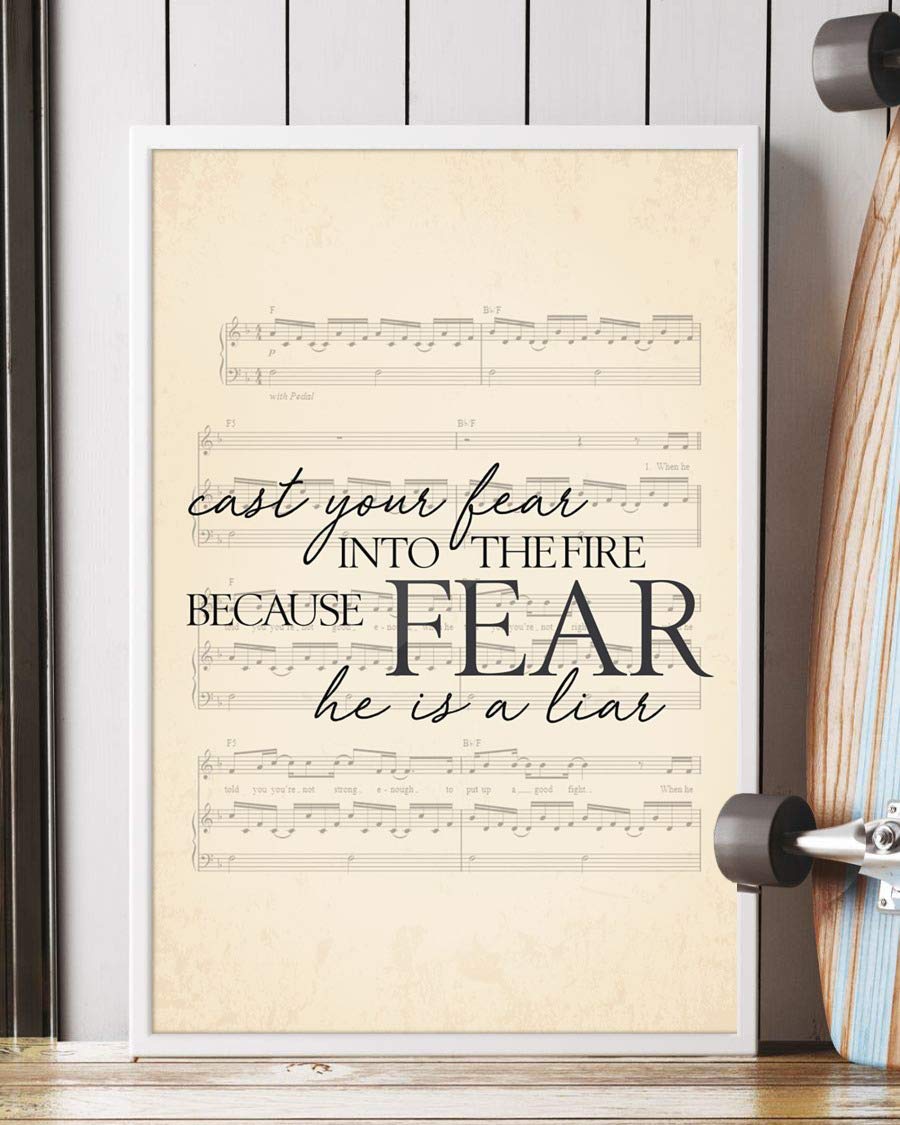 F B♭/F
p
with Pedal
F5 B♭/F
1. When he
cast your fear
INTO THE FIRE
F
BECAUSE FEAR
told you you're not good e - nough
you're not right
he is a liar
F5 B♭/F
told you you're not strong e - nough to put up a good fight When he